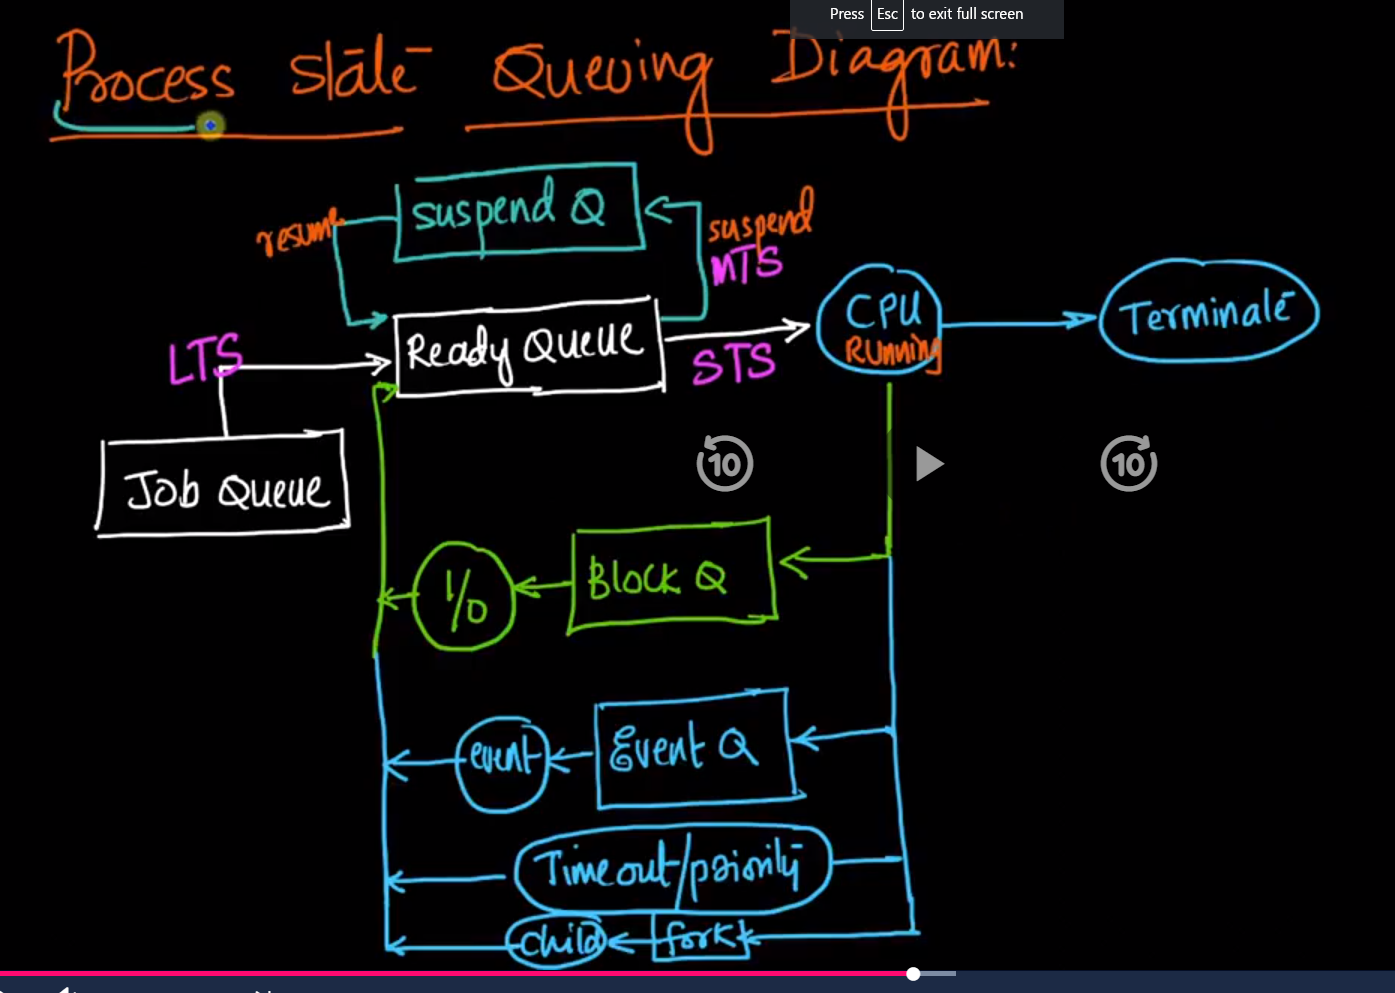 Press Esc to exit full screen
Process State Queuing Diagram:
suspend Q
resume
suspend
MTS
CPU
Running
Terminate
Ready Queue
LTS
STS
Job Queue
10
10
I/O
Block Q
event
Event Q
Timeout/priority
child
fork